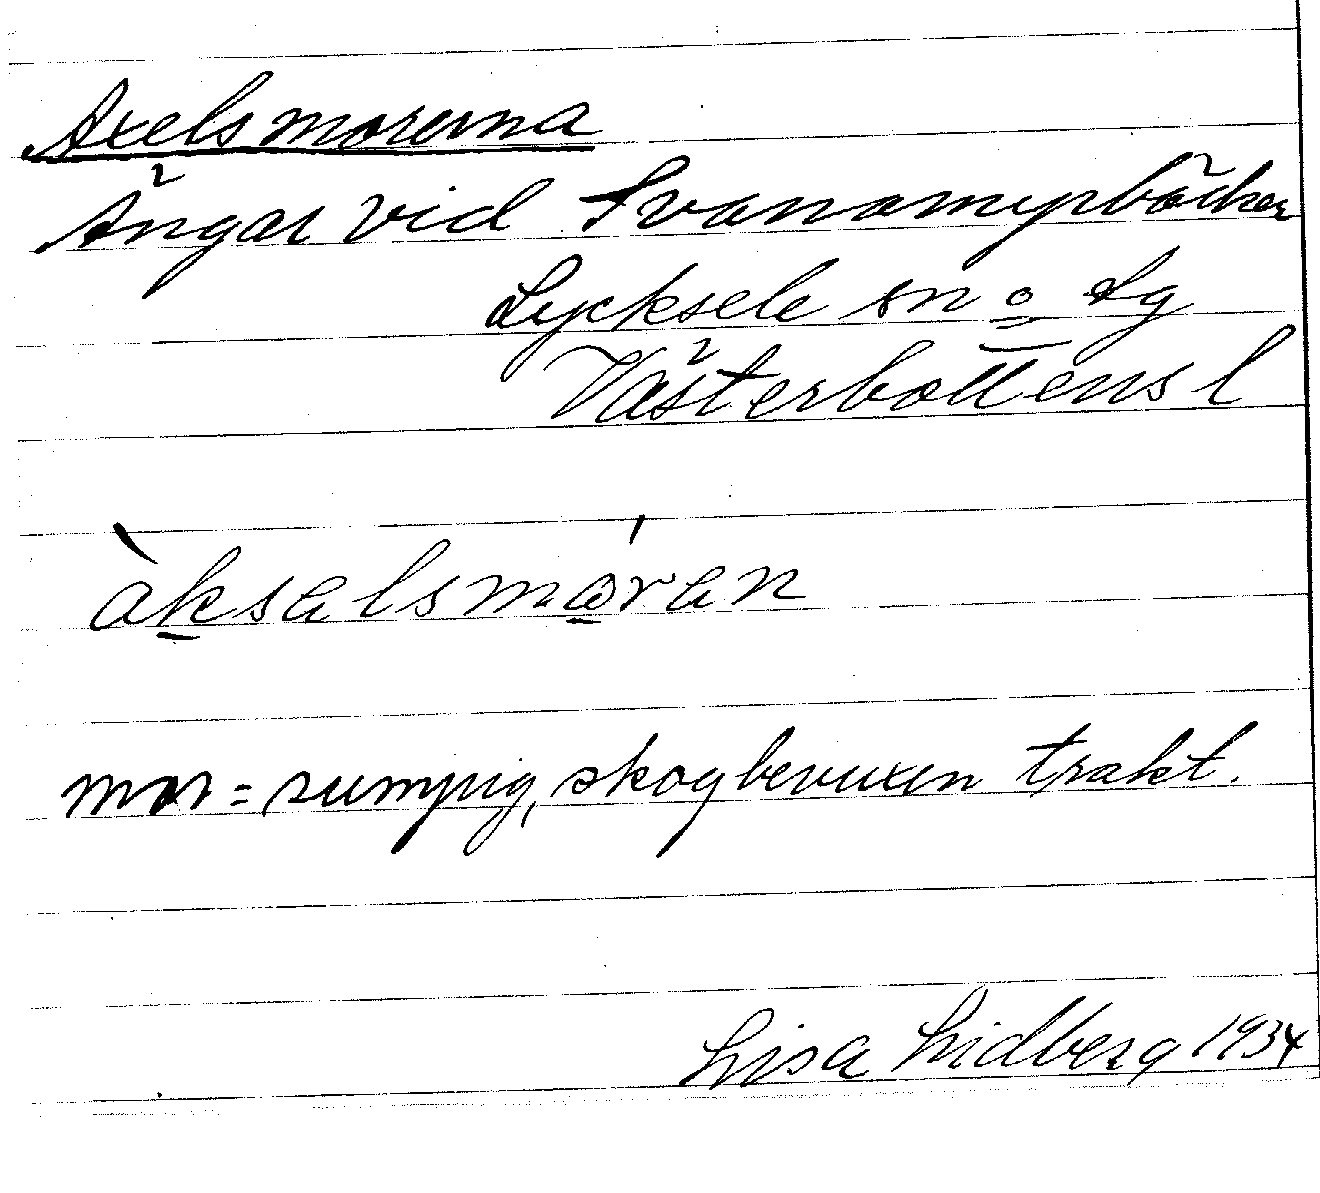 Axelsmorerna
Ängar vid Svanamyrbäcken
Lycksele sn o Lg
Västerbottens l
àksalsmǻran
mor = sumpig, skogbevuxen trakt.
Lisa Lidberg 1934